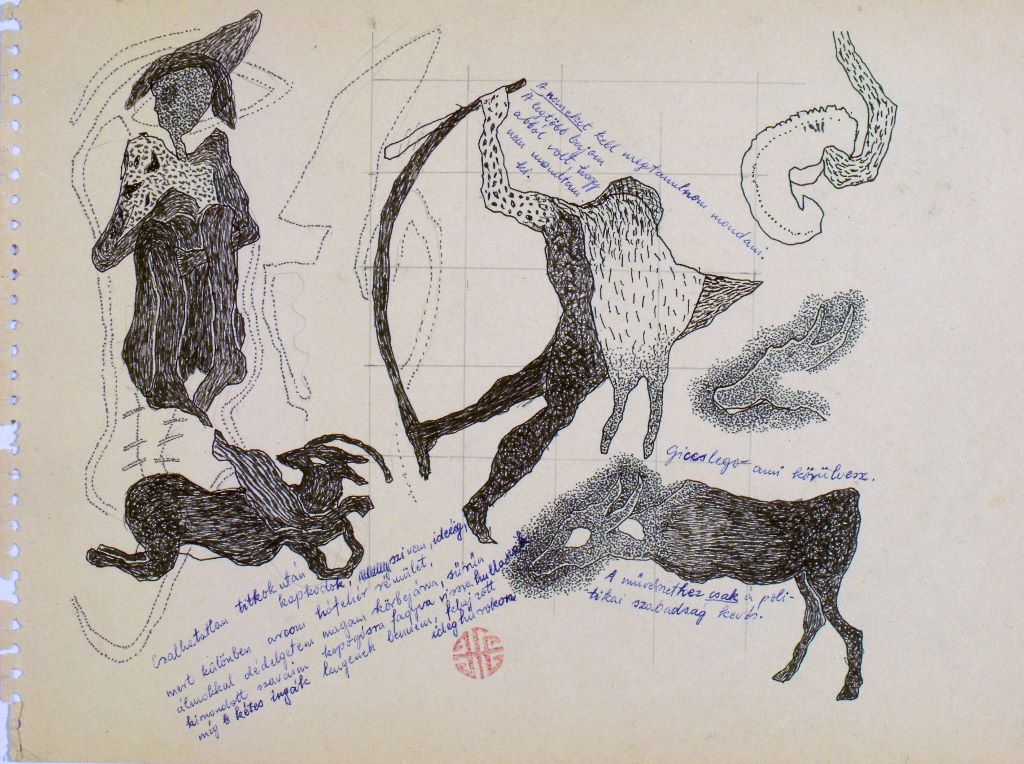 A nemeket kell megtanulnom mondani.
A legtöbb bajom
abból volt, hogy
nem mondtam
ki.
Giccslego- ami körülvesz.
A művészethez csak a poli-
tikai szabadság kevés.
Csalhatatlan titkok után kapkodok, szívem, ideeig,
mert különben arcom hófehér rémület,
álmokkal dédelgetem magam körbejárva, sűrűn
kimondott szavaim kopogósra fagyva visszahullanak
míg kétes ingák lengenek bennem, felajzott
ideghúrokon